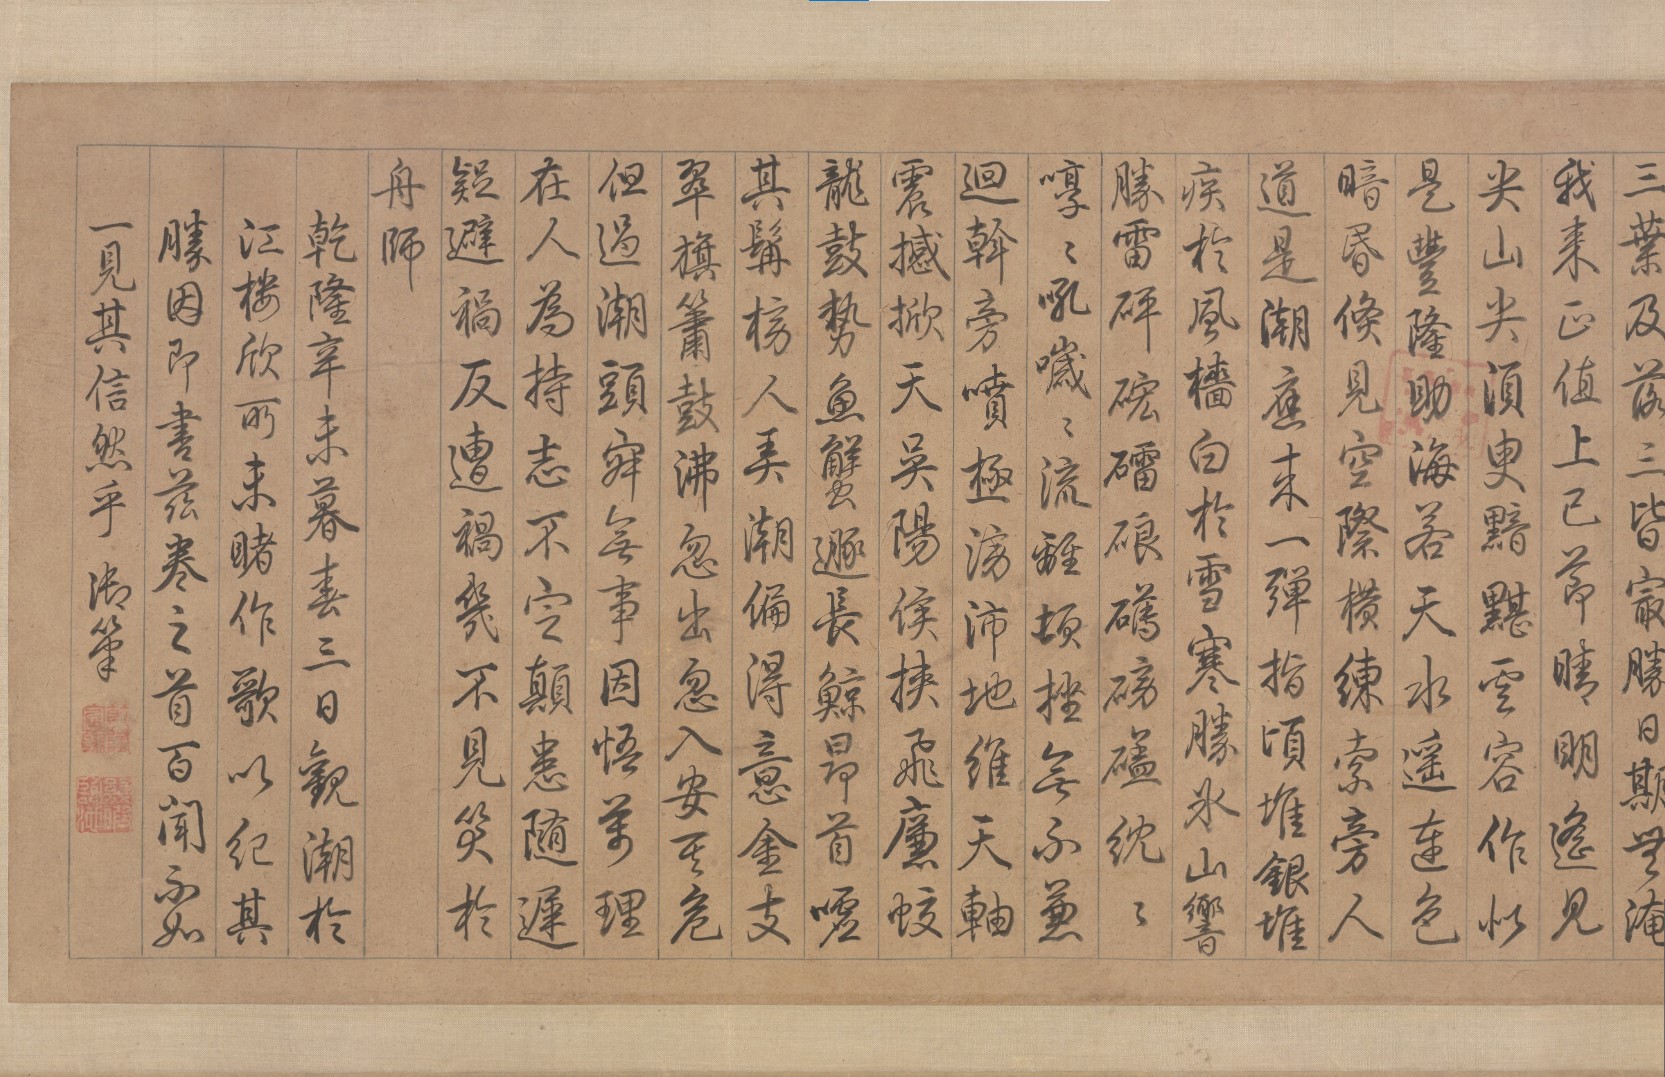 三葉及落三皆寂勝日期無淹
我來正值上巳節晴明遙見
尖山尖須臾黯黮雲容作似
是豐隆助海若天水遥連色
暗昬倏見空際橫練索旁人
道是潮應来一彈指頃堆銀堆
疾於風檣白於雪寒勝氷山響
勝雷砰硡礌硠礴磅礚紞〻
嘑〻吼噦〻流離頓挫無不兼
迴斡旁噴極滂沛地維天軸
震撼掀天吳陽侯挾飛廉蛟
龍鼓勢魚蟹遯長鯨昂首噓
其髯榜人弄潮偏得意金支
翠旗簫鼓沸忽出忽入安其危
但過潮頭寂無事因悟萬理
在人為持志不定顛患随遲
疑避禍反遭禍幾不見笑於
舟師
乾隆辛未暮春三日觀潮於
江樓欣所未睹作歌以紀其
勝因即書茲卷之首百聞不如
一見其信然乎 御筆